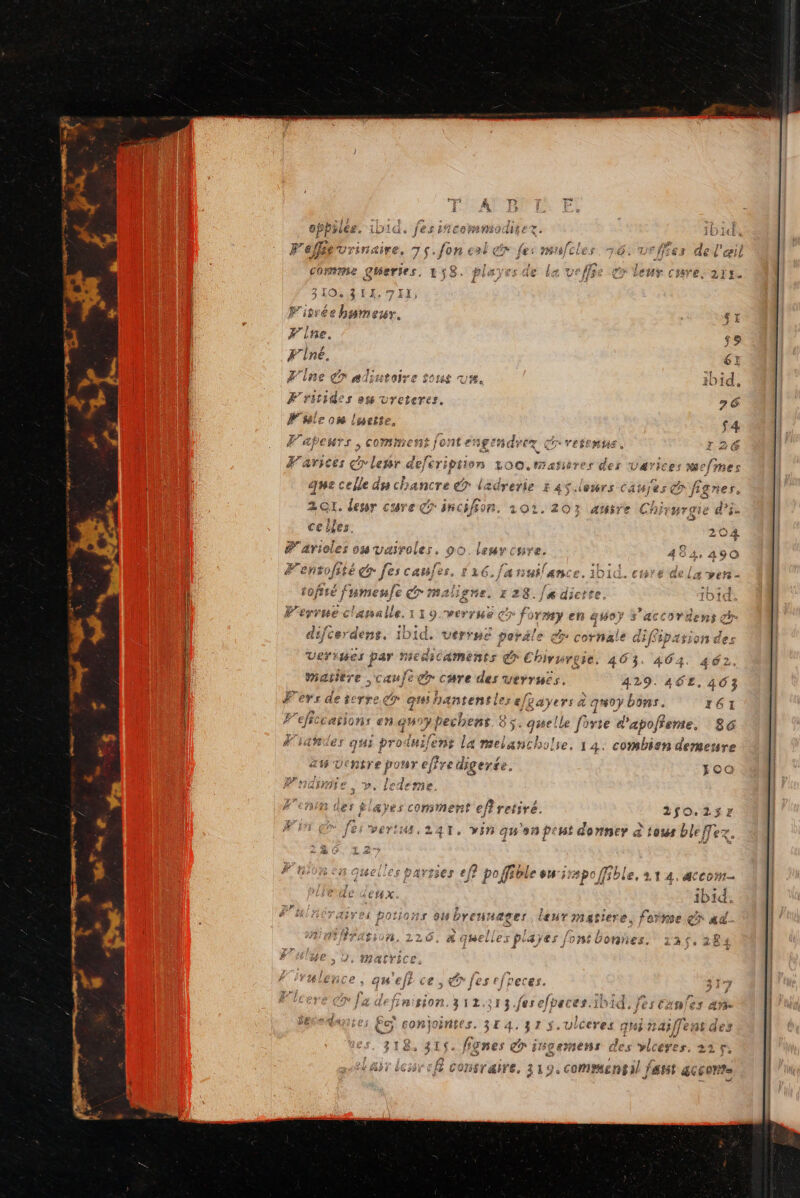 TABLE.
oppilés. ibid. ses incommoditez. ibid.
Vessie vrinaire. 75. son col & ses muscles 76. vessies de l'œil
comme gueries. 158. playes de la vessie & leur cure. 211.
310. 311. 711.
Vitrée humeur. 51
Vlne. 59
Vlné. 61
Vlne & adiutoire tous vn. ibid.
Vritides ou vreteres. 76
Vule ou luette. 54
Vapeurs, comment sont engendrez & retenus. 126
Varices & leur description 100. matieres des varices mesmes
que celle du chancre & ladrerie 145. leurs causes & signes.
201. leur cure & incision. 202. 203 autre Chirurgie d'i-
celles. 204
Varioles ou vairoles. 90. leur cure. 484. 490
Ventosité & ses causes. 126. sa nuisance. ibid. cure de la ven-
tosité fumeuse & maligne. 128. sa diette. ibid.
Verruë clauale. 119. verruë & formy en quoy s'accordent &
discordent. ibid. verruë porale & cornale dissipation des
verrues par medicaments & Chirurgie. 463. 464. 462.
matiere, cause & cure des verruës. 429. 462. 463
Vers de terre & qui hantent les esgayers à quoy bons. 161
Vesiccations en quoy pechent 85. quelle sorte d'aposteme. 86
Viandes qui produisent la melancholie. 14. combien demeure
au ventre pour estre digerée. 100
Vndimie, v. ledeme.
Venin des playes comment est retiré. 250. 252
Vin & ses vertus. 241. vin qu'on peut donner à tous blessez.
226. 227
Vnion en quelles parties est possible ou impossible. 214. accom-
plie de deux. ibid.
Vulneraires potions ou breuuages leur matiere, forme & ad-
ministration. 226. à quelles playes sont bonnes. 225. 284
Vulue, v. matrice.
Virulence, qu'est ce, & ses especes. 317
Vlcere & sa definition. 312. 313. ses especes. ibid. ses causes an-
tecedantes & conjointes. 314. 315. vlceres qui naissent des
318. 315. signes & iugemens des vlceres. 225.
leur est contraire. 319. comment il faut accom-